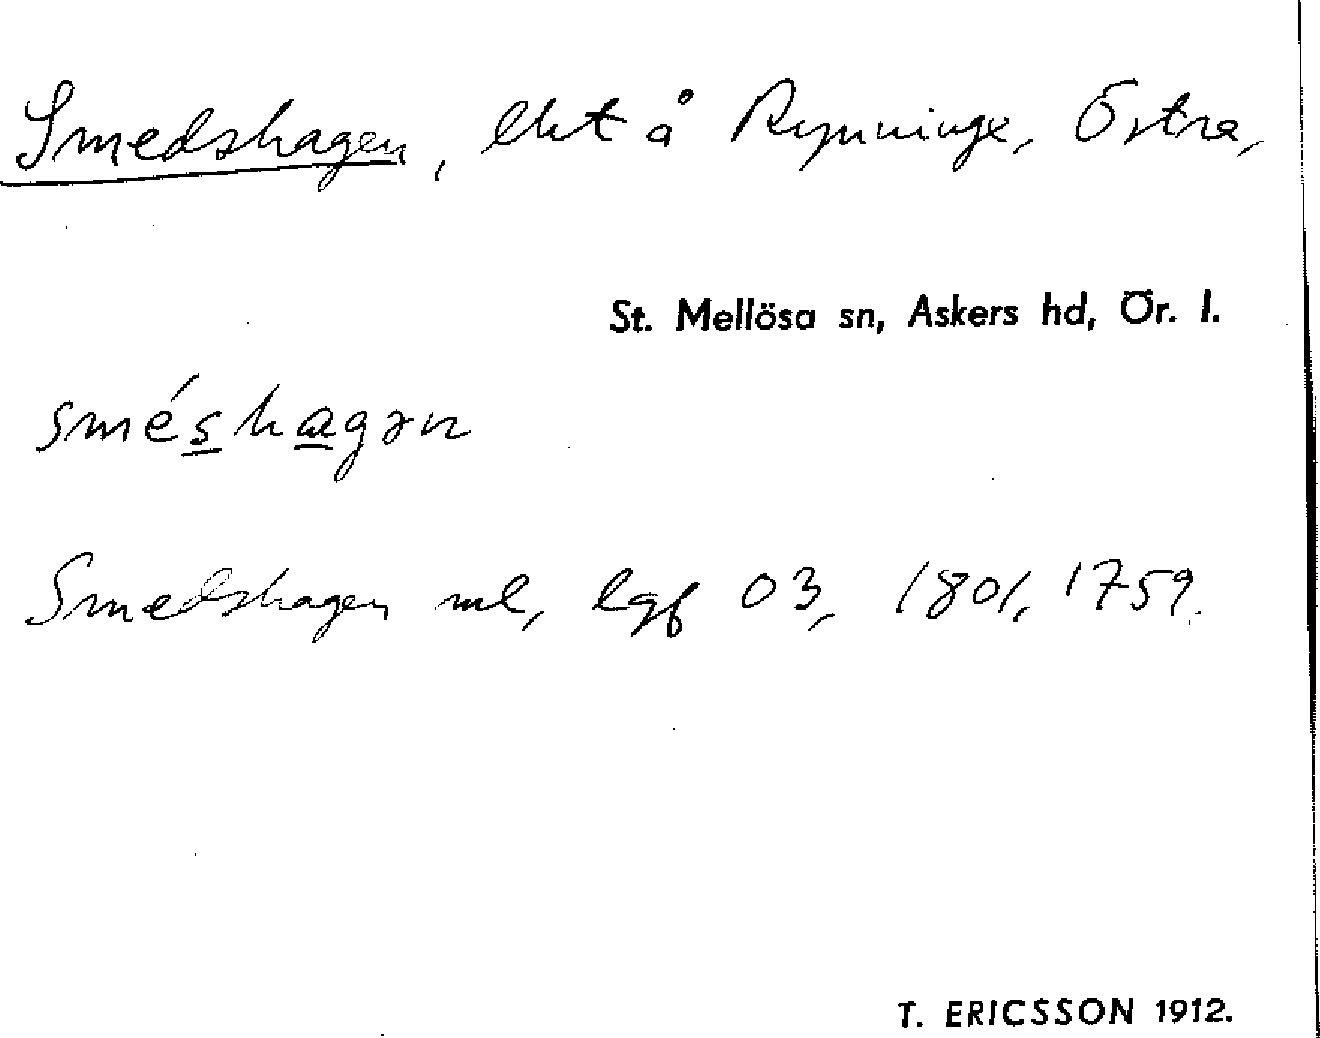 Smedshagen, lht å Rynninge, Östra,
St. Mellösa sn, Askers hd, Ör. l.
sméshagən
Smedshagen ml, lgf 03, 1801, 1759.
T. ERICSSON 1912.